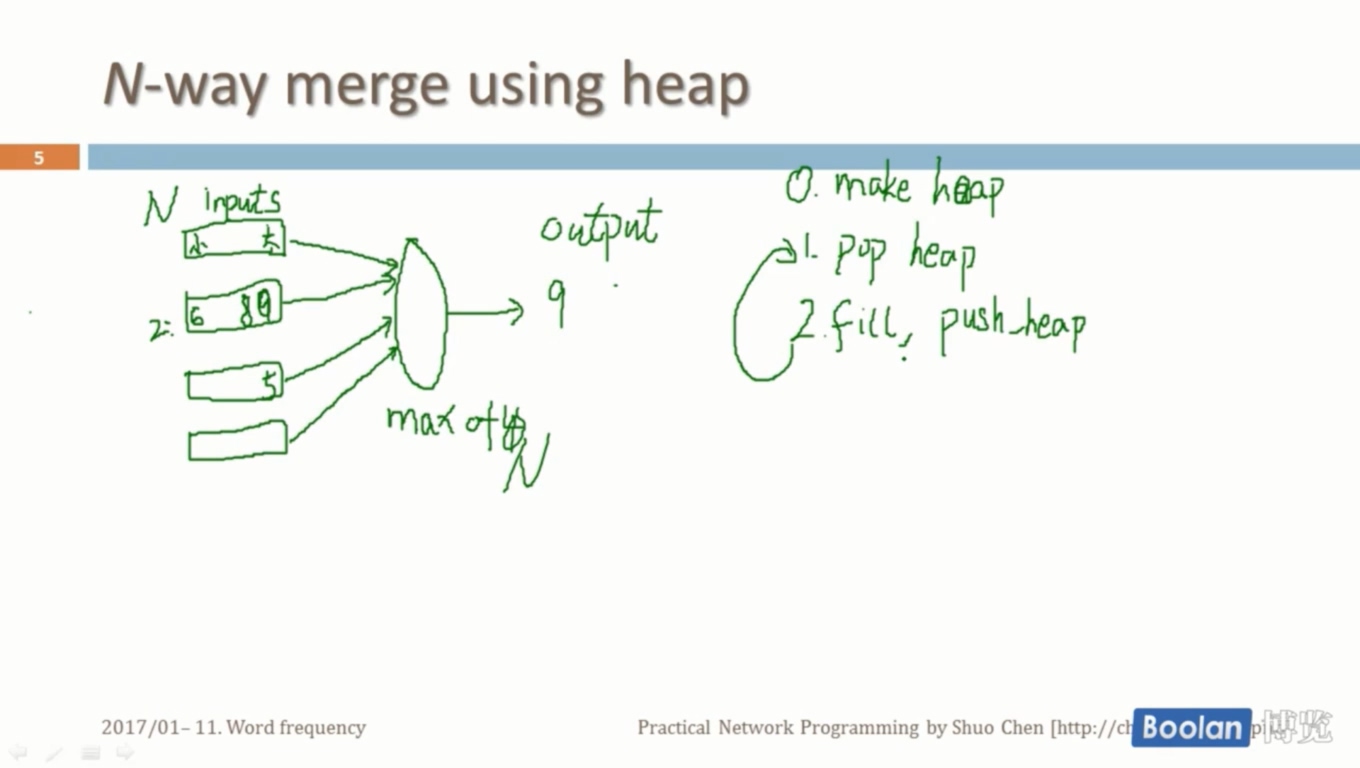 N-way merge using heap
5
N inputs
小 大
2: 6 89
5
output
9
max of N
0. make heap
1. pop heap
2. fill, push_heap
2017/01– 11. Word frequency
Practical Network Programming by Shuo Chen [http://ch
Boolan 博览